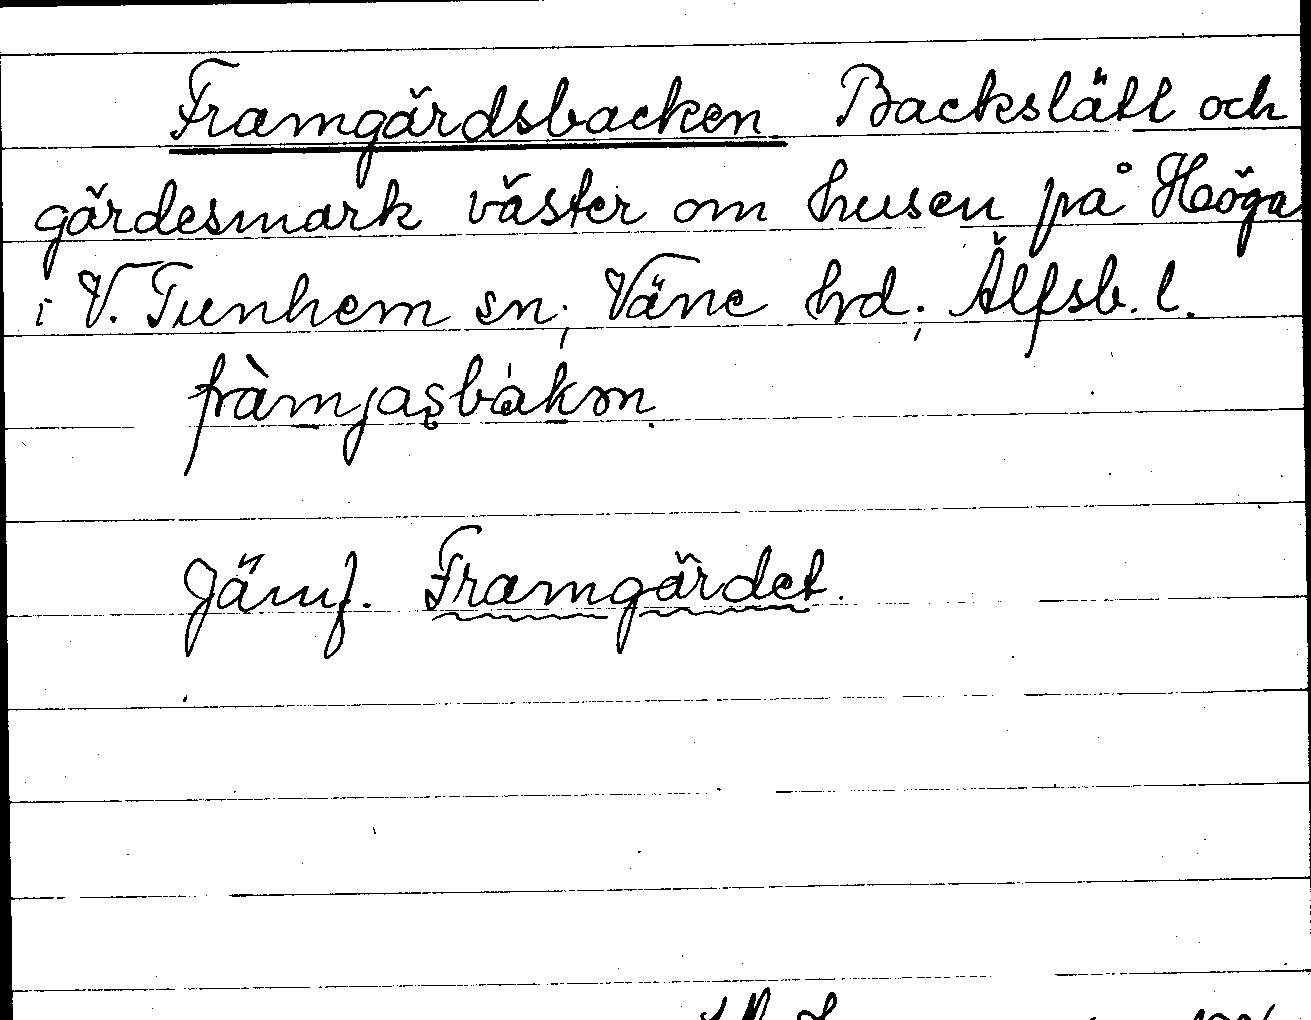 Framgärdsbacken. Backslätt och
gärdesmark väster om husen på Höga
i V. Tunhem sn; Väne hrd; Älfsb. l.
fràmjasbakm.
Jämf. Framgärdet.